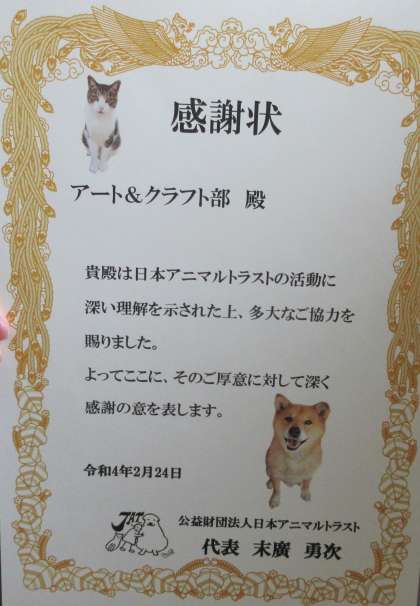 感謝状
アート＆クラフト部 殿
貴殿は日本アニマルトラストの活動に
深い理解を示された上、多大なご協力を
賜りました。
よってここに、そのご厚意に対して深く
感謝の意を表します。
令和4年2月24日
JAT
公益財団法人日本アニマルトラスト
代表 末廣 勇次